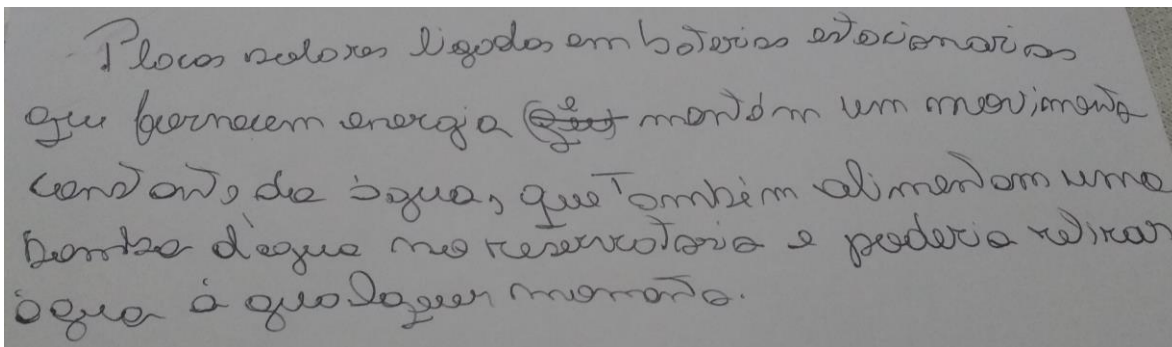 Placas solares ligados em baterias estacionarias
que fornecem energia e mantém um movimento
constante da água, que também alimentam uma
bomba d'agua no reservatorio e poderia retirar
água à qualquer momento.